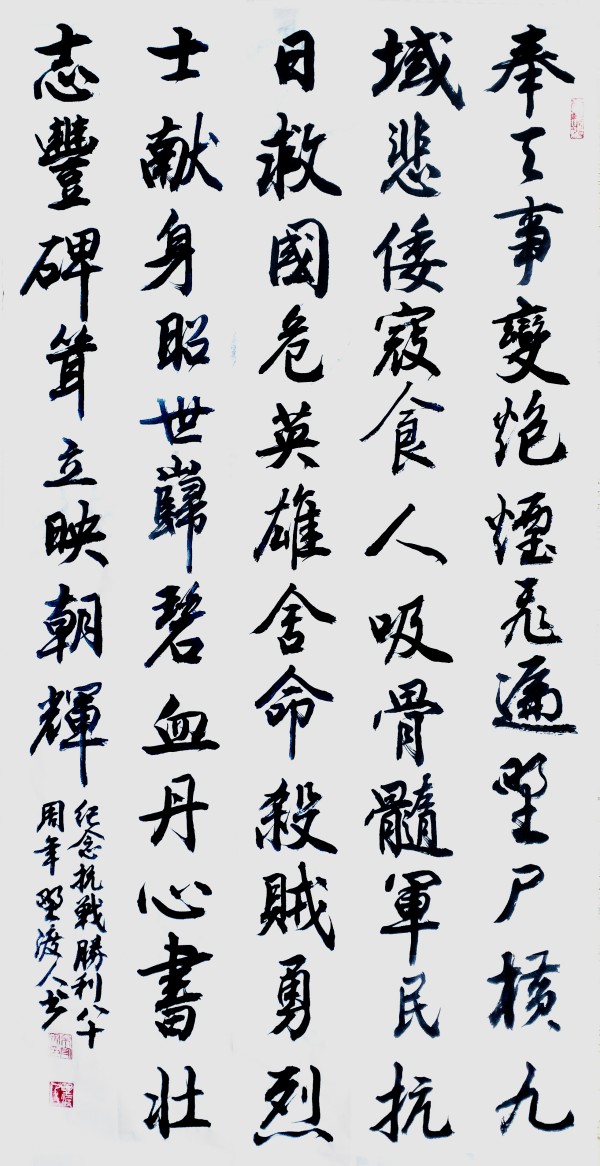 奉天事變炮煙飛遍野尸橫九
域悲倭寇食人吸骨髓軍民抗
日救國危英雄舍命殺賊勇烈
士献身昭世巋碧血丹心書壯
志豐碑耸立映朝輝
紀念抗戰勝利八十
周年野渡人书